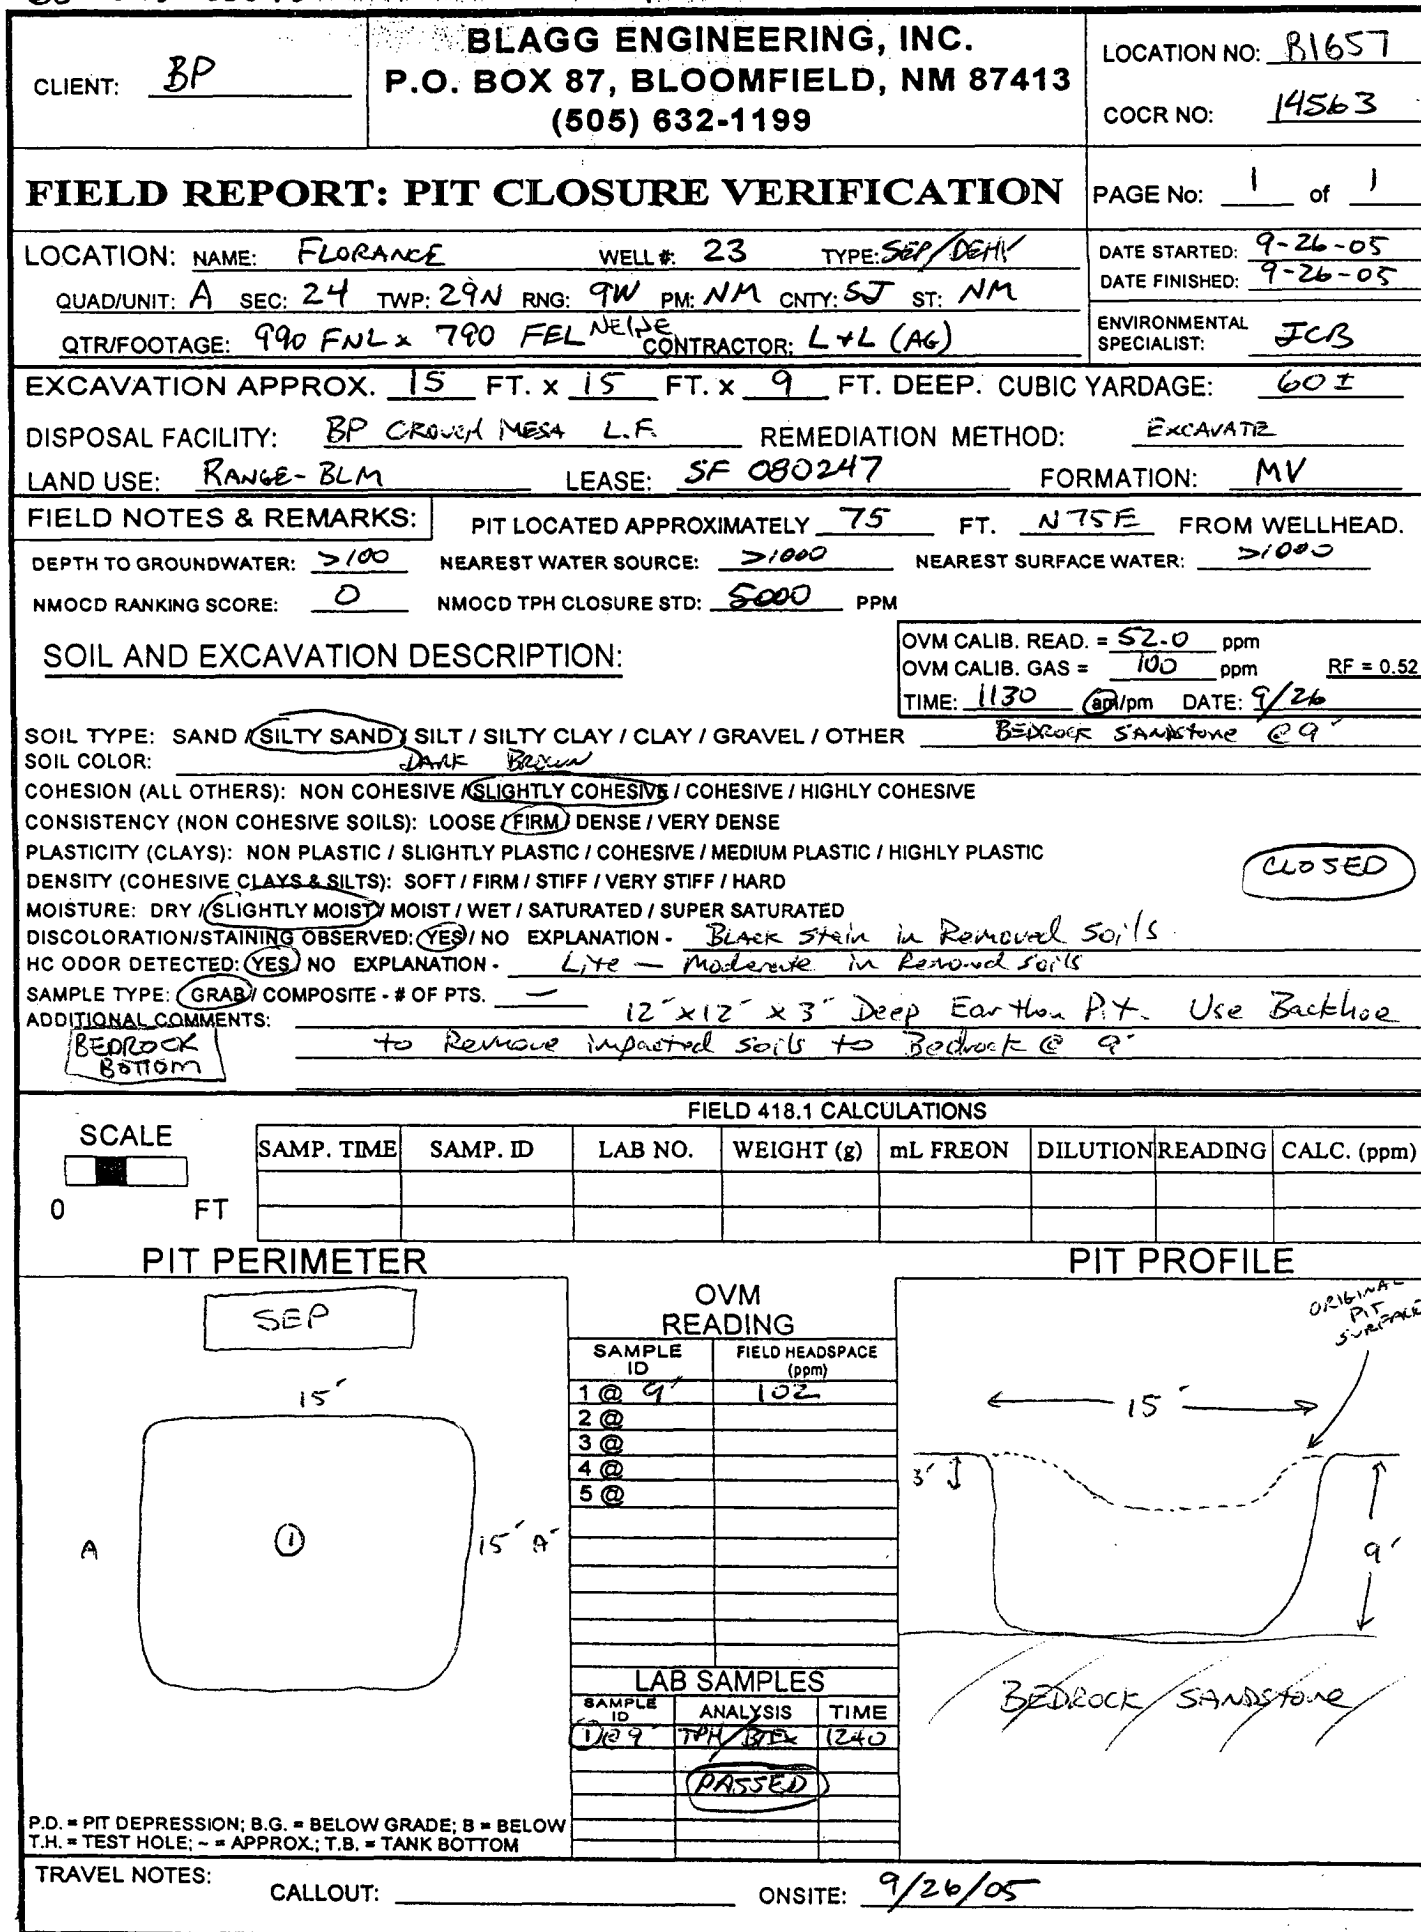 CLIENT: BP
BLAGG ENGINEERING, INC.
P.O. BOX 87, BLOOMFIELD, NM 87413
(505) 632-1199
LOCATION NO: B1657
COCR NO: 14563
FIELD REPORT: PIT CLOSURE VERIFICATION
PAGE No: 1 of 1
LOCATION: NAME: FLORANCE WELL #: 23 TYPE: SEP/DEHY
QUAD/UNIT: A SEC: 24 TWP: 29N RNG: 9W PM: NM CNTY: SJ ST: NM
QTR/FOOTAGE: 990 FNL x 790 FEL NE/NE CONTRACTOR: L+L (AG)
DATE STARTED: 9-26-05
DATE FINISHED: 9-26-05
ENVIRONMENTAL
SPECIALIST: JCB
EXCAVATION APPROX. 15 FT. x 15 FT. x 9 FT. DEEP. CUBIC YARDAGE: 60±
DISPOSAL FACILITY: BP CROUCH MESA L.F. REMEDIATION METHOD: EXCAVATE
LAND USE: RANGE-BLM LEASE: SF 080247 FORMATION: MV
FIELD NOTES & REMARKS: PIT LOCATED APPROXIMATELY 75 FT. N75E FROM WELLHEAD.
DEPTH TO GROUNDWATER: >100 NEAREST WATER SOURCE: >1000 NEAREST SURFACE WATER: >1000
NMOCD RANKING SCORE: 0 NMOCD TPH CLOSURE STD: 5000 PPM
SOIL AND EXCAVATION DESCRIPTION:
OVM CALIB. READ. = 52.0 ppm
OVM CALIB. GAS = 100 ppm RF = 0.52
TIME: 1130 am/pm DATE: 9/26
SOIL TYPE: SAND / SILTY SAND / SILT / SILTY CLAY / CLAY / GRAVEL / OTHER BEDROCK SANDSTONE @ 9'
SOIL COLOR: DARK BROWN
COHESION (ALL OTHERS): NON COHESIVE / SLIGHTLY COHESIVE / COHESIVE / HIGHLY COHESIVE
CONSISTENCY (NON COHESIVE SOILS): LOOSE / FIRM / DENSE / VERY DENSE
PLASTICITY (CLAYS): NON PLASTIC / SLIGHTLY PLASTIC / COHESIVE / MEDIUM PLASTIC / HIGHLY PLASTIC
DENSITY (COHESIVE CLAYS & SILTS): SOFT / FIRM / STIFF / VERY STIFF / HARD
CLOSED
MOISTURE: DRY / SLIGHTLY MOIST / MOIST / WET / SATURATED / SUPER SATURATED
DISCOLORATION/STAINING OBSERVED: YES / NO EXPLANATION - BLACK Stain in Removed Soils
HC ODOR DETECTED: YES / NO EXPLANATION - Lite - Moderate in Removed Soils
SAMPLE TYPE: GRAB / COMPOSITE - # OF PTS. —
ADDITIONAL COMMENTS: 12' x 12' x 3' Deep Earthen Pit. Use Backhoe
to Remove impacted soils to Bedrock @ 9'
BEDROCK
BOTTOM
FIELD 418.1 CALCULATIONS
SCALE
0 FT
SAMP. TIME SAMP. ID LAB NO. WEIGHT (g) mL FREON DILUTION READING CALC. (ppm)
PIT PERIMETER
SEP
15'
A
1
15' A'
OVM
READING
SAMPLE ID FIELD HEADSPACE (ppm)
1 @ 9' 102
2 @
3 @
4 @
5 @
LAB SAMPLES
SAMPLE ID ANALYSIS TIME
1 @ 9' TPH/BTEX 1240
PASSED
PIT PROFILE
ORIGINAL
PIT
SURFACE
15'
3'
9'
BEDROCK SANDSTONE
P.D. = PIT DEPRESSION; B.G. = BELOW GRADE; B = BELOW
T.H. = TEST HOLE; ~ = APPROX.; T.B. = TANK BOTTOM
TRAVEL NOTES:
CALLOUT: ONSITE: 9/26/05